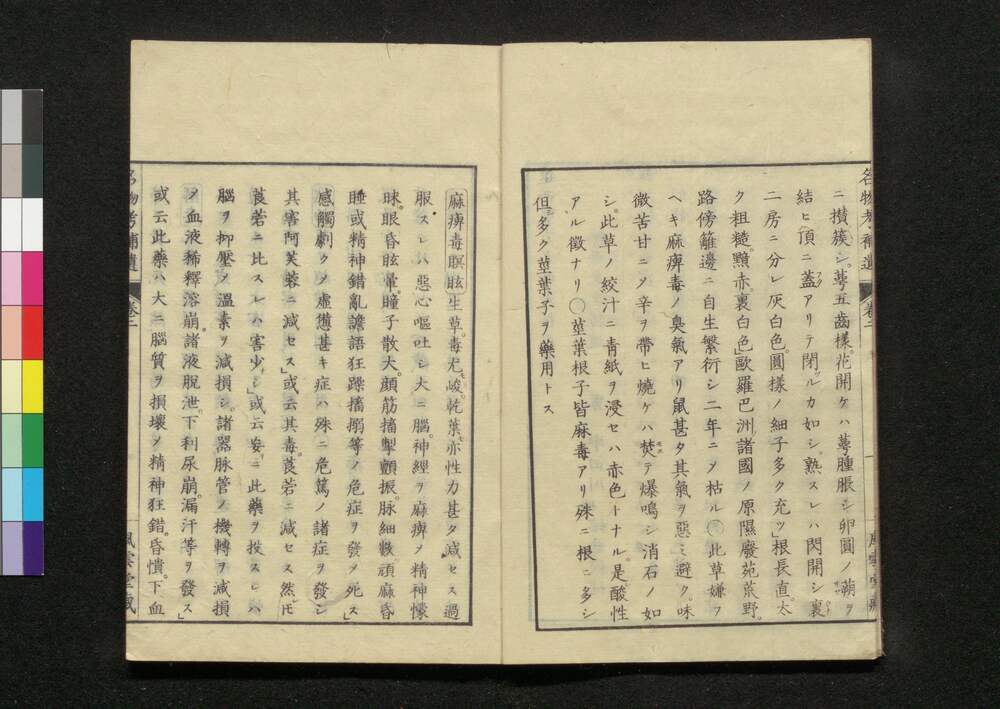 名物考補遺 卷二 一 風雲堂藏
ニ攅簇シ。萼五齒様花開ケハ萼腫脹シ卵圓ノ蒴ヲ
結ヒ頂ニ蓋アリテ閉ツルカ如シ。熟スレハ閃開シ裏
二房ニ分レ灰白色。圓様ノ細子多ク充ツ」根長直。太
ク粗糙。黯赤。裏白色」歐羅巴洲諸國ノ原隰廢苑荒野。
路傍籬邊ニ自生繁衍シ二年ニメ枯ル○此草嫌フ
ヘキ麻痺毒ノ臭氣アリ鼠甚タ其氣ヲ惡ミ避ク。味
微苦甘ニメ辛ヲ帶ヒ燒ケハ焚テ爆鳴シ消石ノ如
シ。此草ノ絞汁ニ青紙ヲ浸セハ赤色トナル。是酸性
アル徴ナリ○莖葉根子皆麻毒アリ殊ニ根ニ多シ
但多ク莖葉子ヲ藥用トス
麻痺毒瞑眩生草。毒尤峻。乾葉。亦性力甚タ減セス過
服スレハ惡心嘔吐シ大ニ腦神經ヲ麻痺メ精神懞
眛。眼昏眩暈。瞳子散大。顔筋搐掣顫振。脉細數頑麻昏
睡或精神錯亂譫語狂躁搐搦等ノ危症ヲ發メ死ス」
感觸劇クメ虚憊甚キ症ハ殊ニ危篤ノ諸症ヲ發シ
其害阿芙蓉ニ減セス」或云其毒。莨菪ニ減セス然𪜈
莨菪ニ比スレハ害少シ」或云妄ニ此藥ヲ投スレハ
腦ヲ抑壓メ溫素ヲ減損シ。諸器脉管ノ機轉ヲ減損
メ血液稀釋溶崩。諸液脱泄。下利尿崩。漏汗等ヲ發ス」
或云此藥ハ大ニ腦質ヲ損壞メ精神狂錯。昏憒。下血
名物考補遺 卷二 風雲堂藏